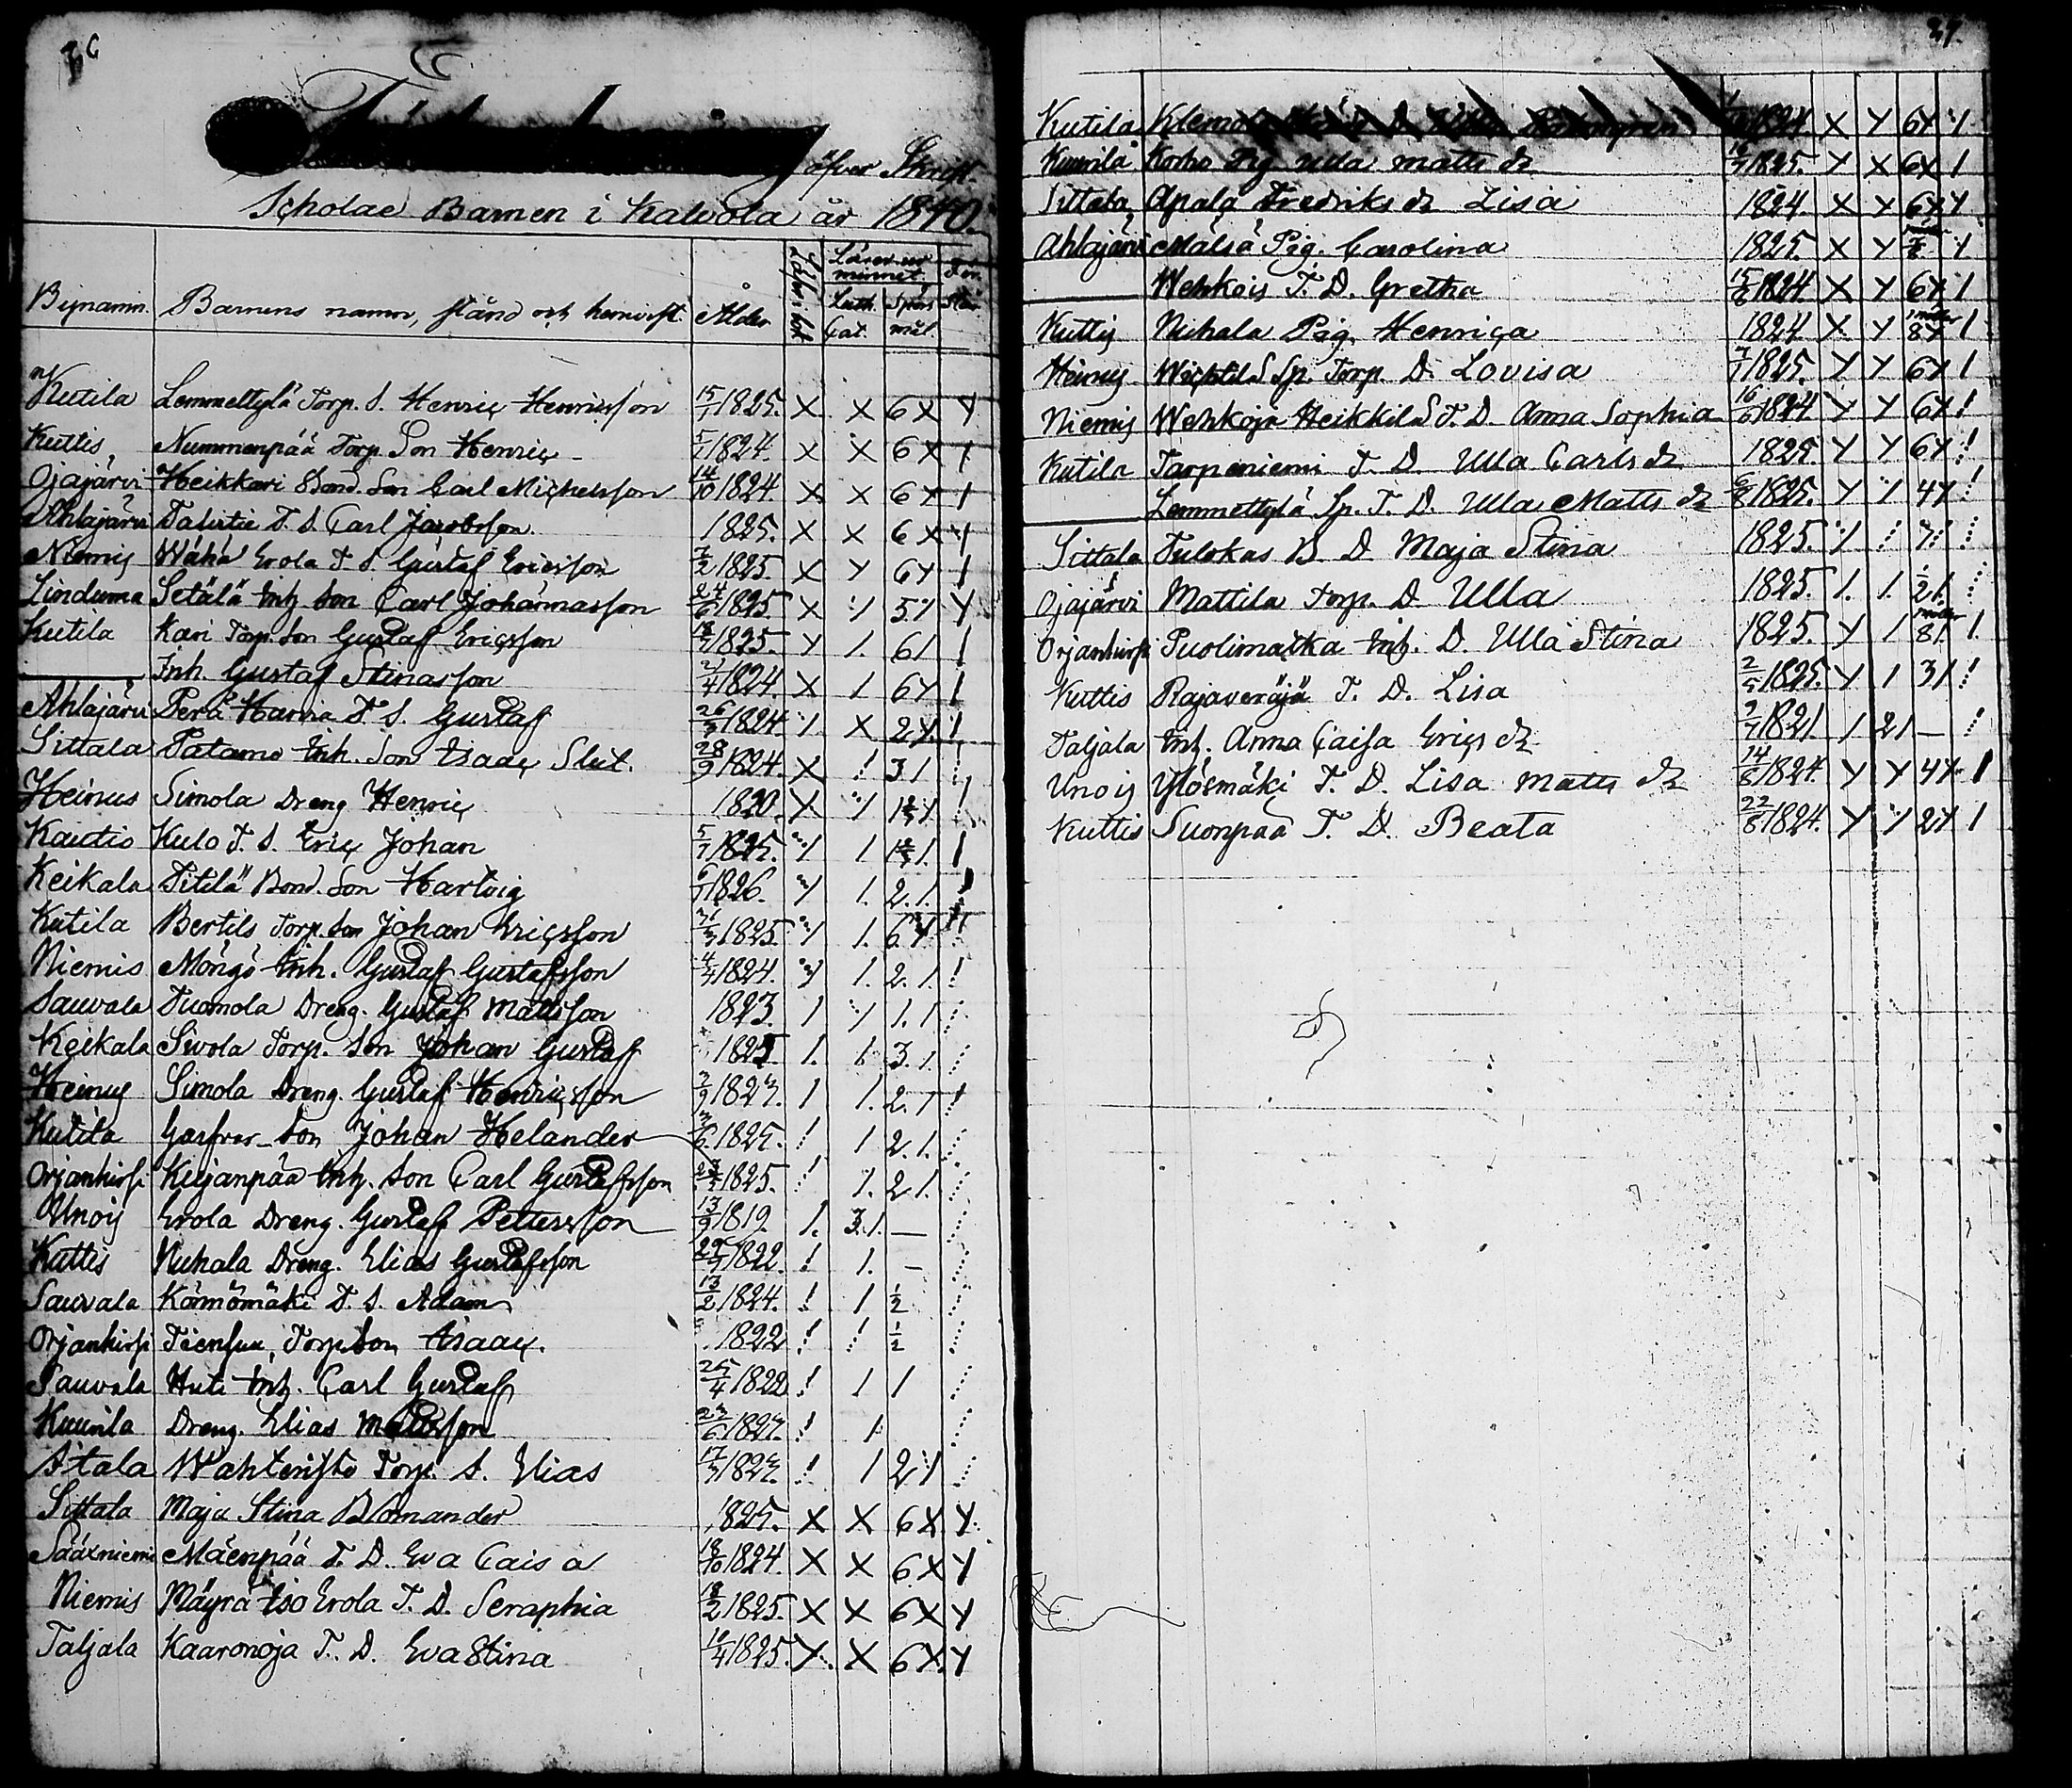 öfver Skrift-
Scholae Barnen i Kalvola år 1840.
Bynamn. Barnens namn, stånd och hemvist. Ålder Läser i bok Läser ur minnet. För-
Luth. Cat. Spörs mål. står
Kutila Lemmettylä Torp. S. Henric Henricsson 15/1 1825. X X 6X Y
Kuttis Nummenpää Torp. Son Henric 5/1 1824. X X 6X 1
Ojajärvi Heikkari Bond. Son Carl Michelsson 14/10 1824. X X 6Y 1
Ahlajärvi T. S. Carl Jacobsson. 1825. X X 6X
Niemis Wähä Erola T. S. Gustaf Ericsson 7/2 1825 X Y 6Y 1
Linduma Setälä Inh. Son Carl Johannasson 24/6 1825 X 5 Y
Kutila Kari Torp. Son Gustaf Ericsson 18/7 1825. Y 1. 61 1
— Inh. Gustaf Stinasson 21/4 1824. X 1 6Y 1
Ahlajärvi Perä Harvia T. S. Gustaf 26/3 1824 X 2Y.
Sittala Patamo Inh. Son Isaac Slut. 28/9 1824. X 31
Heinus Simola Dreng Henric 1820. X
Kautio Kulo T. S. Eric Johan 5/7 1825. 1 1
Keikala Pitilä Bond. Son Hartvig 6/1 1826. 1. 2.1.
Kutila Bertils Torp. Son Johan Ericsson 31/3 1825. 1. 6
Niemis Möngö Inh. Gustaf Gustafsson 4/4 1824. 1. 2.1.
Sauvala Tuomola Dreng. Gustaf Mattsson 1823. 1 1.1
Keikala Sivola Torp. Son Johan Gustaf 1825 1. 1 3.1.
Heinus Simola Dreng. Gustaf Henricsson 7/9 1823. 1 1. 2.1
Kutila Son Johan Helander 3/6 1825. 1 2.1.
Orjanhirsi Kiljanpää Inh. Son Carl Gustafsson 1825. 1. 21.
Unois Erola Dreng. Gustaf Pettersson 13/9 1819. 1. 3.1. —
Kuttis Nuhala Dreng. Elias Gustafsson 1822. 1. —
Sauvala Körmömäki T. S. Adam 13/2 1824. 1 1/2
Orjanhirsi Tiensuu, Torp. Son Isaac. 1822 1/2
Sauvala Huti Inh. Carl Gustaf 25/4 1822 1 1
Kuurila Dreng. Elias Mattsson 23/6 1823. 1
Åtala Wahteristo Torp. S. Elias 17/3 1823. 1 2
Sittala Maja Stina Blomander 1825. X X 6X Y
Sääxniemi Mäenpää T. D. Eva Caisa 18/10 1824. X X 6X Y
Niemis Mäyrä Iso Erola T. D. Seraphia 18/2 1825. X X 6X Y
Taljala Kaaronoja T. D. Eva Stina 10/4 1825. Y X 6X. Y
37.
Kutila 1824. X Y 6Y
Kuurila Korho Pig. Ulla Matts dr 16/7 1825. Y X 6X 1
Sittala Apala Fredriks dr Lisa 1824. X Y 6Y Y
Ahlajärvi Mälsä Pig. Carolina 1825. X Y
— Wehkois T. D. Gretha 15/2 1824. X Y 6Y 1
Kuttis Nuhala Pig. Henrica 1824. X Y 8Y 1
Heinus Sp. Torp. D. Lovisa 7/1 1825. Y Y 6Y 1
Niemis Wehkoja Heikkilä T. D. Anna Sophia 16/6 1824 Y Y 6Y
Kutila Tarpeniemi T. D. Ulla Carls dr 1825. Y Y 6Y
— Lemmettylä Sp. T. D. Ulla Matts dr 1825. Y 4Y
Sittala Tulokas B. D. Maja Stina 1825.
Ojajärvi Mattila Torp. D. Ulla 1825. 1. 1.
Orjanhirsi Puolimatka Inh. D. Ulla Stina 1825. Y 1 81. 1.
Kuttis Rajaveräjä T. D. Lisa 2/5 1825. Y 1 31
Taljala Inh. Anna Caisa Erics dr 9/7 1821. 1 21 —
Unois Ylösmäki T. D. Lisa Matts dr 14/8 1824. Y Y 4Y 1
Kuttis Suonpää T. D. Beata 22/8 1824. Y 2Y 1